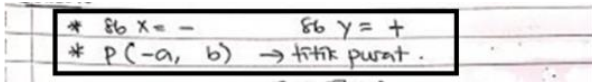 * Sb x = - Sb y = +
* P(-a, b) → titik pusat.